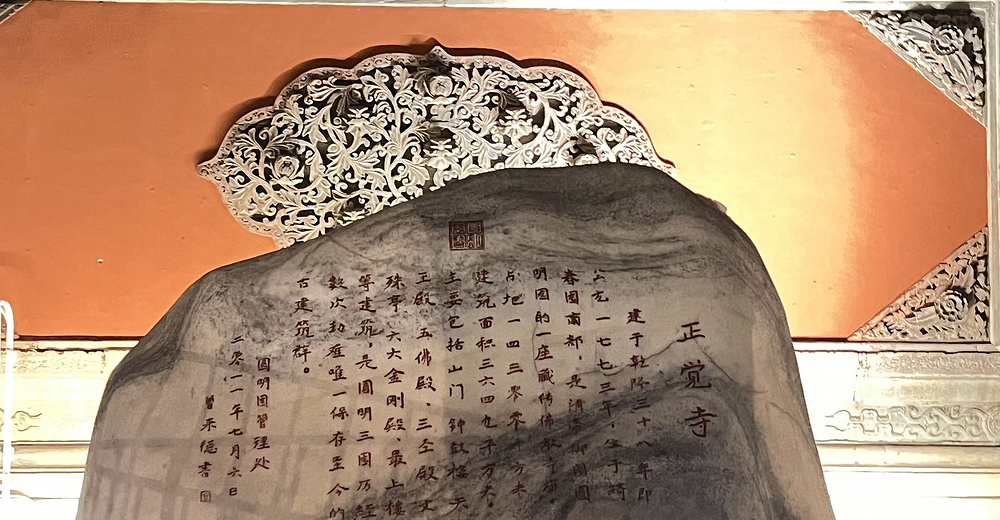 正觉寺
建于乾隆三十八年即
公元一七七三年，位于绮
春园南部，是清帝御园圆
明园的一座藏传佛教寺庙，
占地一四三零零平方米
建筑面积三六四九平方米。
主要包括山门 钟鼓楼 天
王殿、五佛殿、三圣殿文
殊亭、六大金刚殿、最上楼
等建筑，是圆明三园历经
数次劫难唯一保存至今的
古建筑群。
圆明园管理处
二零一一年七月六日
曾来德書